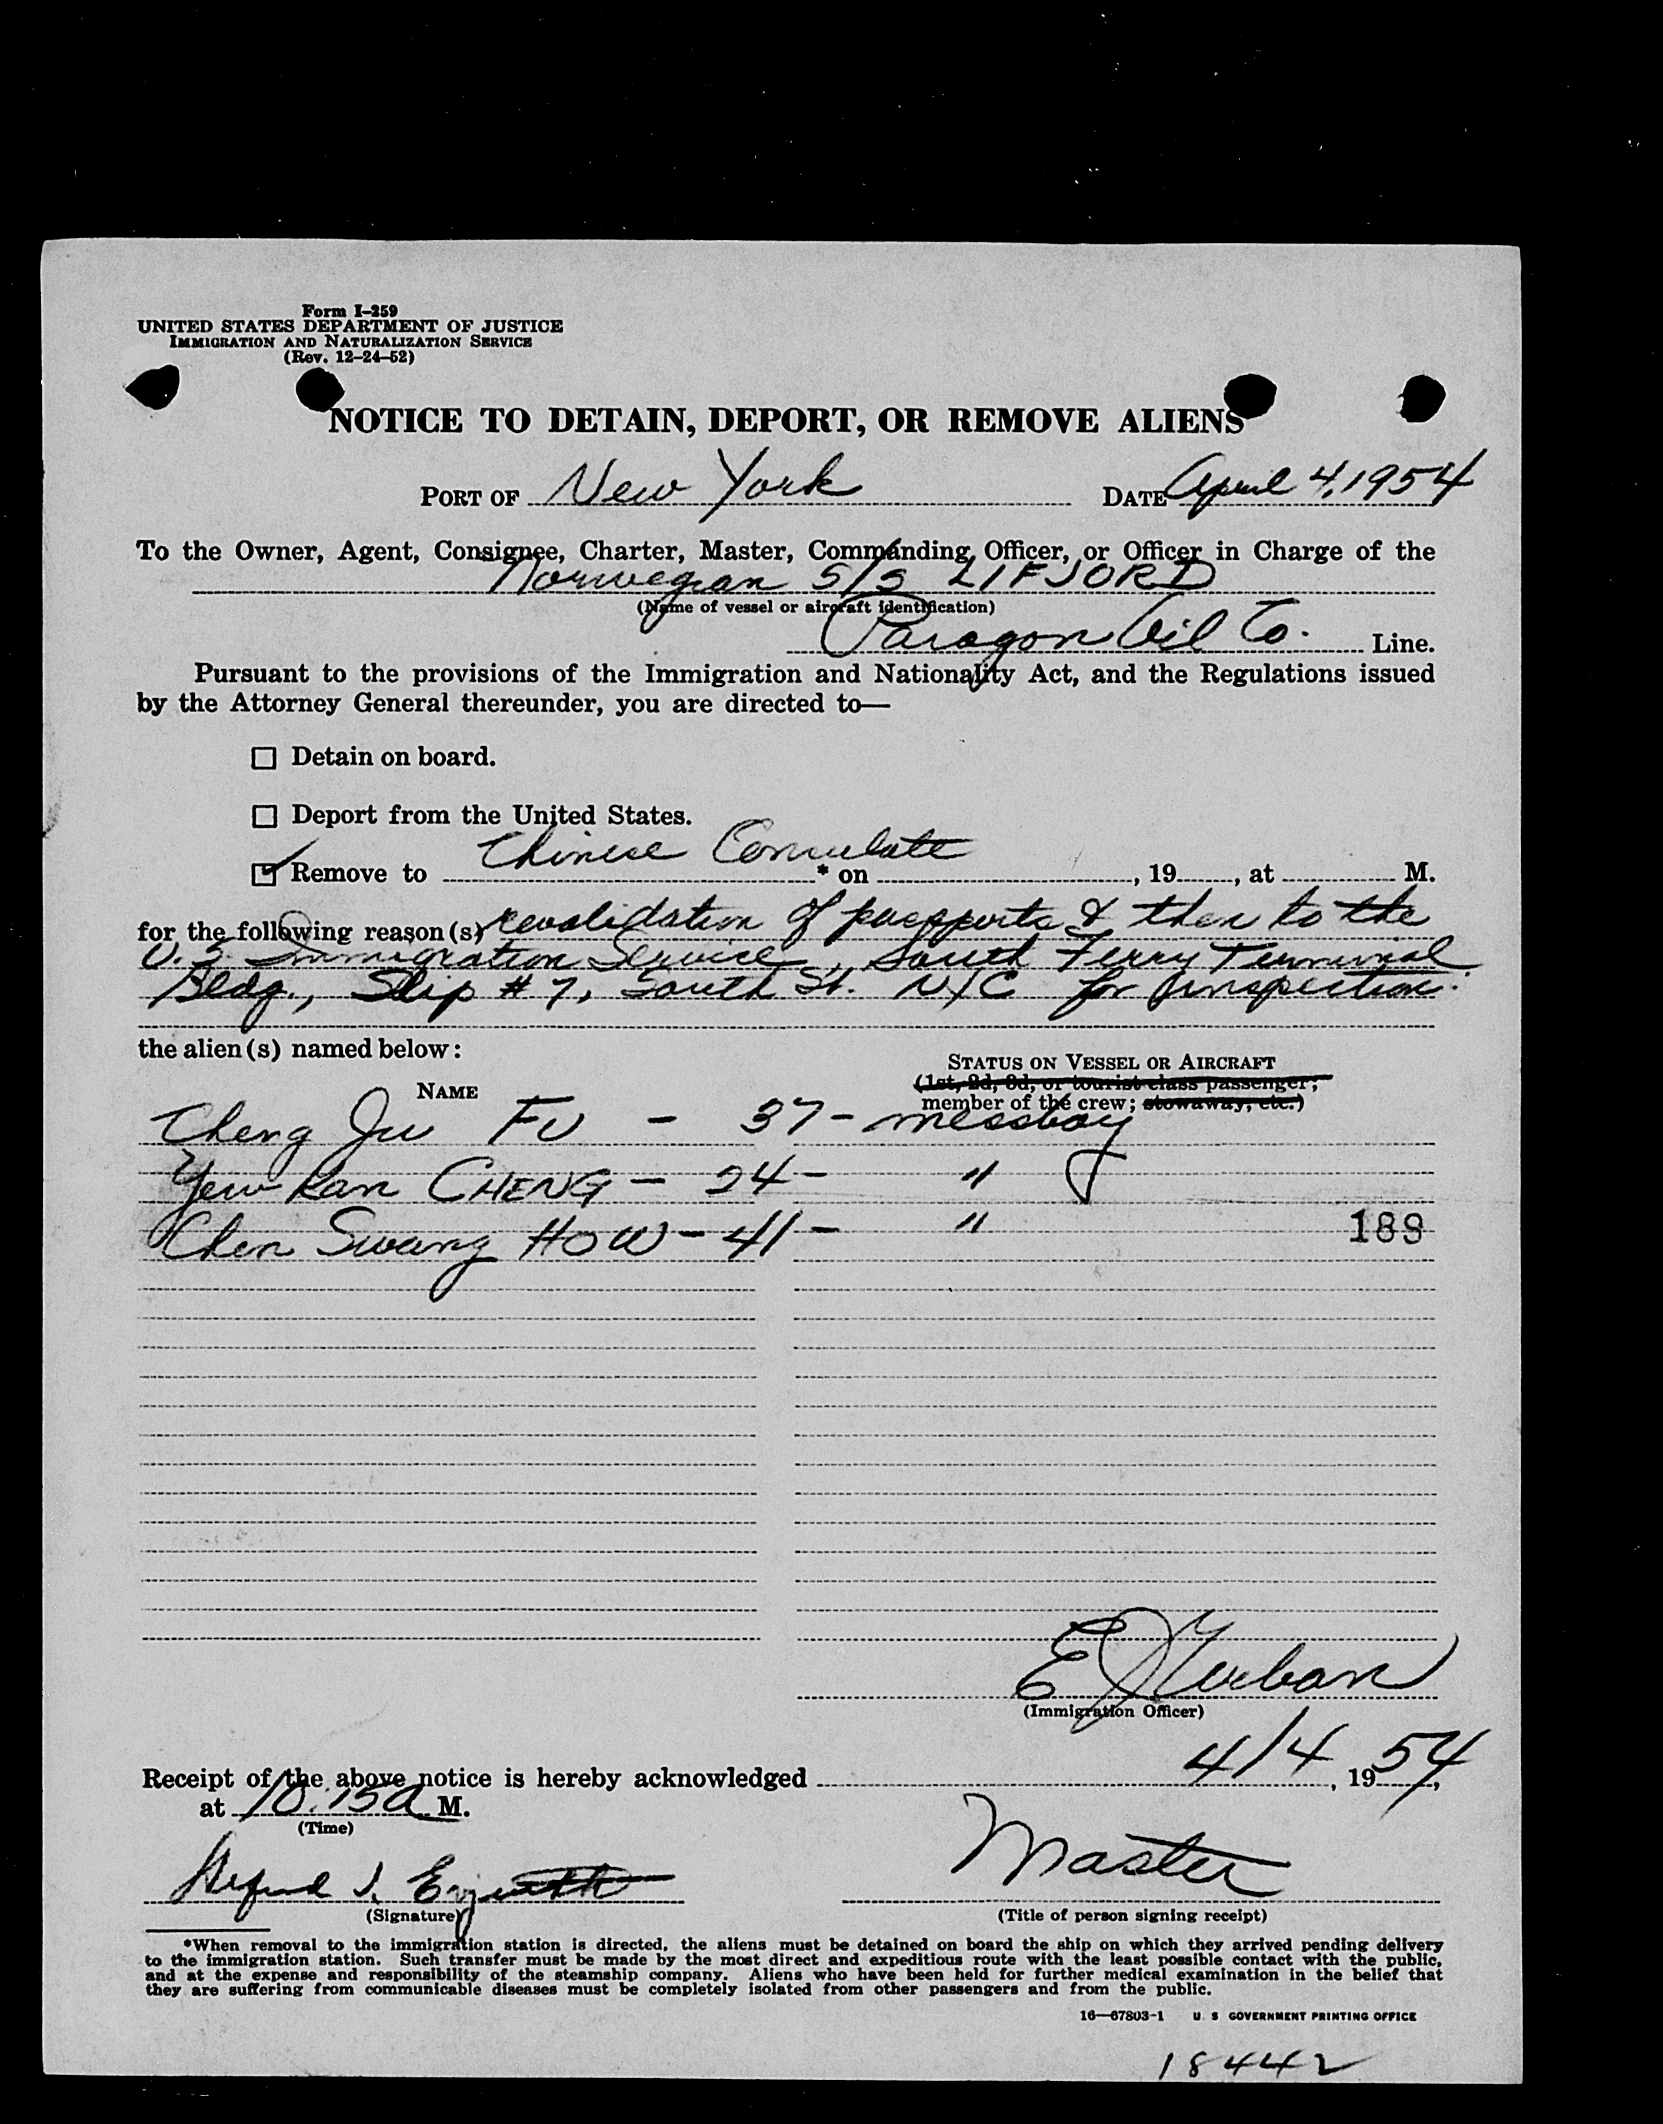 Form I-259
UNITED STATES DEPARTMENT OF JUSTICE
IMMIGRATION AND NATURALIZATION SERVICE
(Rev. 12-24-52)
NOTICE TO DETAIN, DEPORT, OR REMOVE ALIENS
PORT OF New York DATE April 4, 1954
To the Owner, Agent, Consignee, Charter, Master, Commanding Officer, or Officer in Charge of the
Norwegian S/S LIFJORD
(Name of vessel or aircraft identification)
Paragon Oil Co. Line.
Pursuant to the provisions of the Immigration and Nationality Act, and the Regulations issued
by the Attorney General thereunder, you are directed to—
☐ Detain on board.
☐ Deport from the United States.
☑ Remove to Chinese Consulate * on , 19 , at M.
for the following reason(s) revalidation of passports & then to the
U.S. Immigration Service, South Ferry Terminal
Bldg., Slip # 7, South St. NYC for inspection.
the alien(s) named below:
STATUS ON VESSEL OR AIRCRAFT
NAME (1st, 2d, 3d, or tourist class passenger;
member of the crew; stowaway, etc.)
Cheng Ju FU - 37 - messboy
Yew Kan CHENG - 24 - "
Chen Swang HOW - 41 - "
189
E J Urban
(Immigration Officer)
Receipt of the above notice is hereby acknowledged 4/4, 1954,
at 10:15 A M.
(Time)
Master
(Signature)
(Title of person signing receipt)
*When removal to the immigration station is directed, the aliens must be detained on board the ship on which they arrived pending delivery
to the immigration station. Such transfer must be made by the most direct and expeditious route with the least possible contact with the public,
and at the expense and responsibility of the steamship company. Aliens who have been held for further medical examination in the belief that
they are suffering from communicable diseases must be completely isolated from other passengers and from the public.
16—67803-1 U. S. GOVERNMENT PRINTING OFFICE
18442